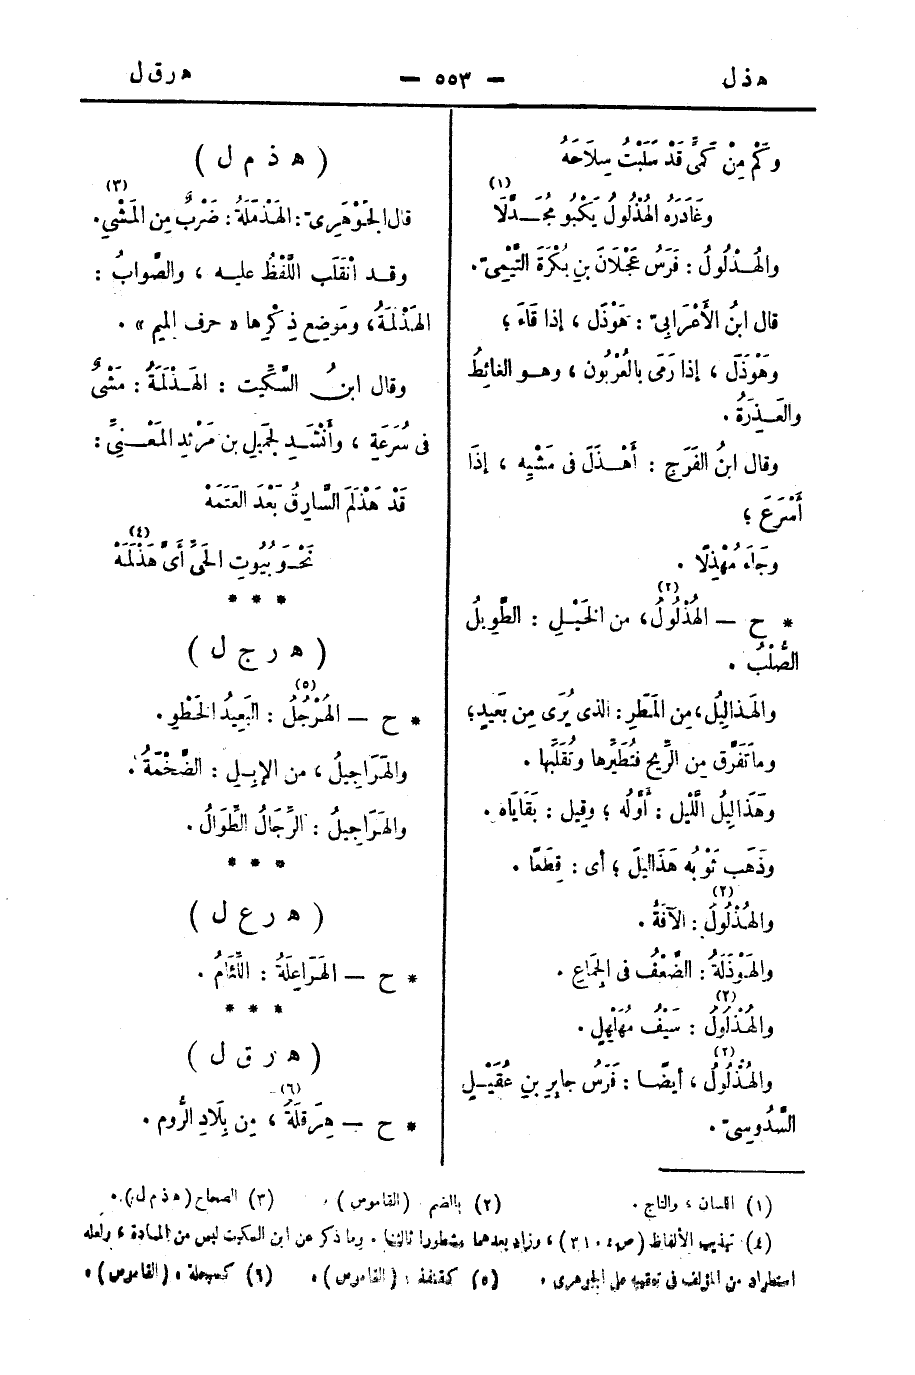 هذل — ٥٥٣ — هرقل
وَكَمْ مِنْ كَمِىٍّ قَدْ سَلَبْتُ سِلَاحَهُ
وَغَادَرَهُ الهُذْلُولُ يَكْبُو مُجَدَّلَا (١)
والهُذْلُولُ : فَرَسُ عَجْلَانَ بنِ بُكْرَةَ التَّيْمِىّ .
قال ابنُ الأَعْرَابِىّ : هَوْذَلَ ، إذا قَاءَ ؛
وهَوْذَلَ ، إذا رَمَى بالعُرْبُون ، وهو الغائِطُ
والعَذِرَةُ .
وقال ابنُ الفَرَجِ : أَهْذَلَ فى مَشْيِه ، إذَا
أَسْرَعَ ؛
وجَاءَ مُهْذِلًا .
* ح — الهُذْلُولُ (٢)، من الخَيْلِ : الطَّوِيلُ
الصُّلْبُ .
والهَذالِيلُ ، مِن المَطَرِ : الذى يُرَى مِن بَعيدٍ ؛
وما تَفَرَّق مِن الرِّيحِ فتُطَيِّرُها وتُقَلِّبُها .
وهَذَالِيلُ اللَّيْل : أَوَّلُه ؛ وقِيل : بَقَايَاه .
وذَهَب ثَوْبُه هَذَالِيلَ ؛ أى : قِطَعًا .
والهُذْلُولُ (٢) : الآفَةُ .
والهَوْذَلَةُ : الضَّعْفُ فى الجِمَاعِ .
والهُذْلُولُ (٢) : سَيْفُ مُهَلْهِلٍ .
والهُذْلُولُ (٢) ، أيضًا : فَرَسُ جابِرِ بنِ عُقَيْلٍ
السَّدُوسِىّ .
( ه ذ م ل )
قال الجَوْهَرِىّ : الهَذْمَلَةُ : ضَرْبٌ مِن المَشْىِ (٣) .
وقد انْقَلَب اللَّفْظُ عليه ، والصَّوابُ :
الهَذْلَمَةُ ، ومَوضِع ذِكْرِها « حرف الميم » .
وقال ابنُ السِّكِّيت : الهَذْلَمَةُ : مَشْىٌ
فى سُرْعَةٍ ، وأَنْشَد لجَمِيلِ بن مَرْثَدٍ المَعْنِىِّ :
قَدْ هَذْلَمَ السَّارِقُ بَعْدَ العَتَمَهْ
نَحْوَ بُيُوتِ الحَىِّ أَىَّ هَذْلَمَهْ (٤)
* * *
( ه ر ج ل )
* ح — الهُرْجُلُ (٥) : البَعِيدُ الخَطْوِ .
والهَرَاجِيلُ ، من الإبِلِ : الضَّخْمَةُ .
والهَرَاجِيلُ : الرِّجَالُ الطِّوَالُ .
* * *
( ه ر ع ل )
* ح — الهَرَاعِلَةُ : اللِّئَامُ .
* * *
( ه ر ق ل )
* ح — هِرَقْلَةُ (٦) ، مِن بِلَادِ الرُّوم .
(١) اللسان ، والتاج . (٢) بالضم (القاموس) . (٣) الصحاح (ه ذ م ل) .
(٤) تهذيب الألفاظ (ص ٣١٠٤) ، وزاد بعدهما مشطورا ثالثا . وما ذكر عن ابن السكيت ليس من المادة ، ولعله
استطراد من المؤلف فى توقيبه على الجوهرى . (٥) كقنفذة . (القاموس) . (٦) كسبحلة . (القاموس) .